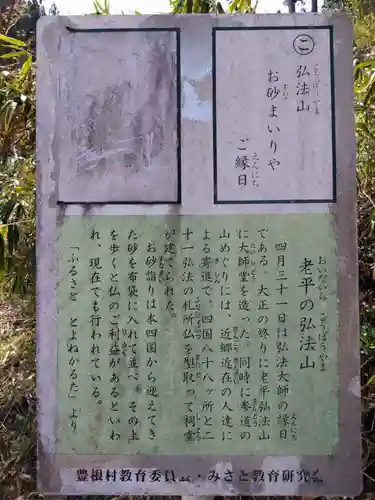 ㋙
弘法山
お砂まいりや
ご縁日
老平の弘法山
四月二十一日は弘法大師の縁日
である。大正の終りに老平弘法山
に大師堂を造った。同時に参道の
山めぐりには、近郷近在の人達に
よる寄進で、四国八十八ヶ所と二
十一弘法の札所仏を型取って祠堂
が建てられた。
お砂詣りは本四国から迎えてき
た砂を布袋に入れて並べ、その上
を歩くと仏のご利益があるといわ
れ、現在でも行われている。
「ふるさと とよねかるた」より
豊根村教育委員会・みさと教育研究会